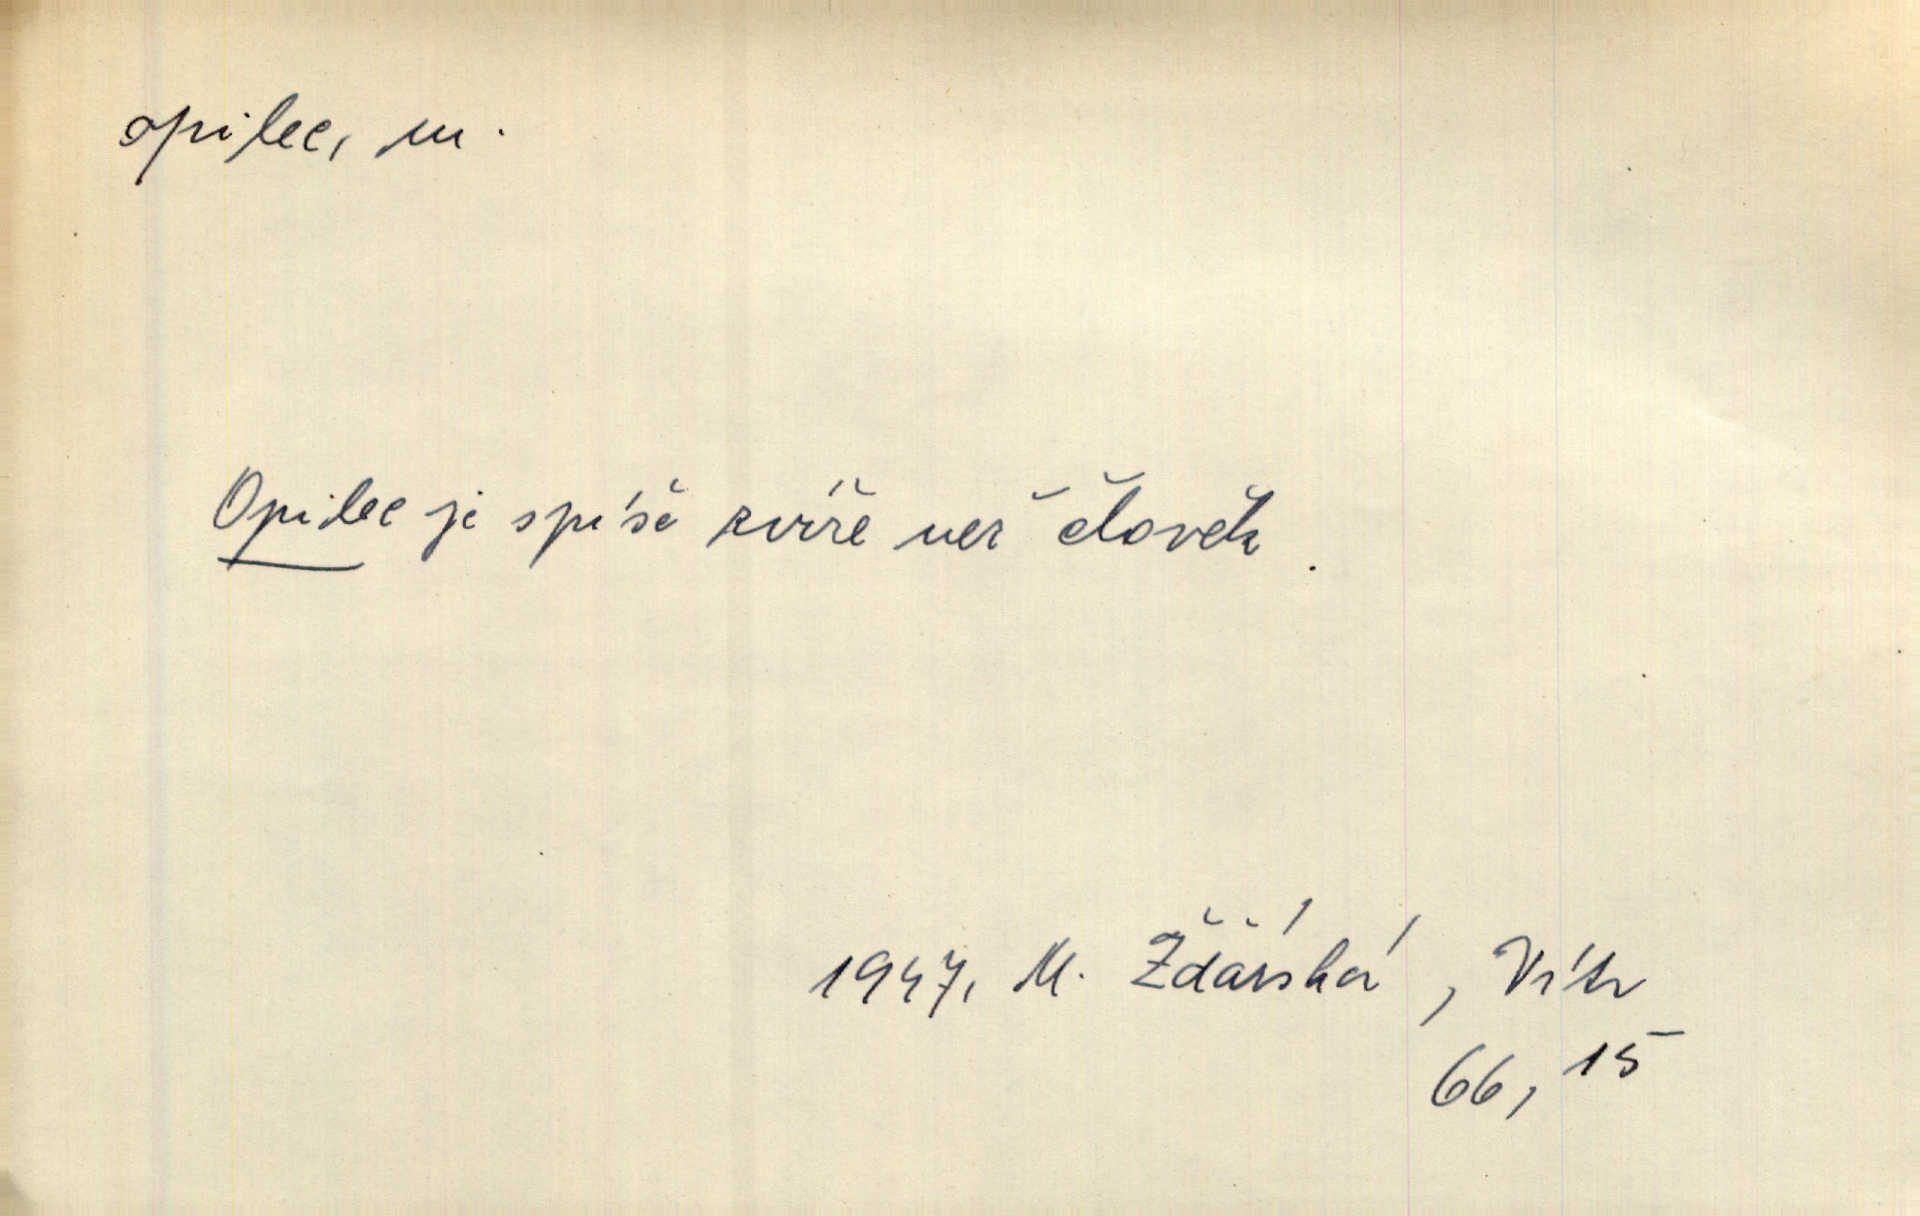 opilec, m.
Opilec je spíše zvíře než člověk.
1947, M. Žďárská, Vítr
66, 15